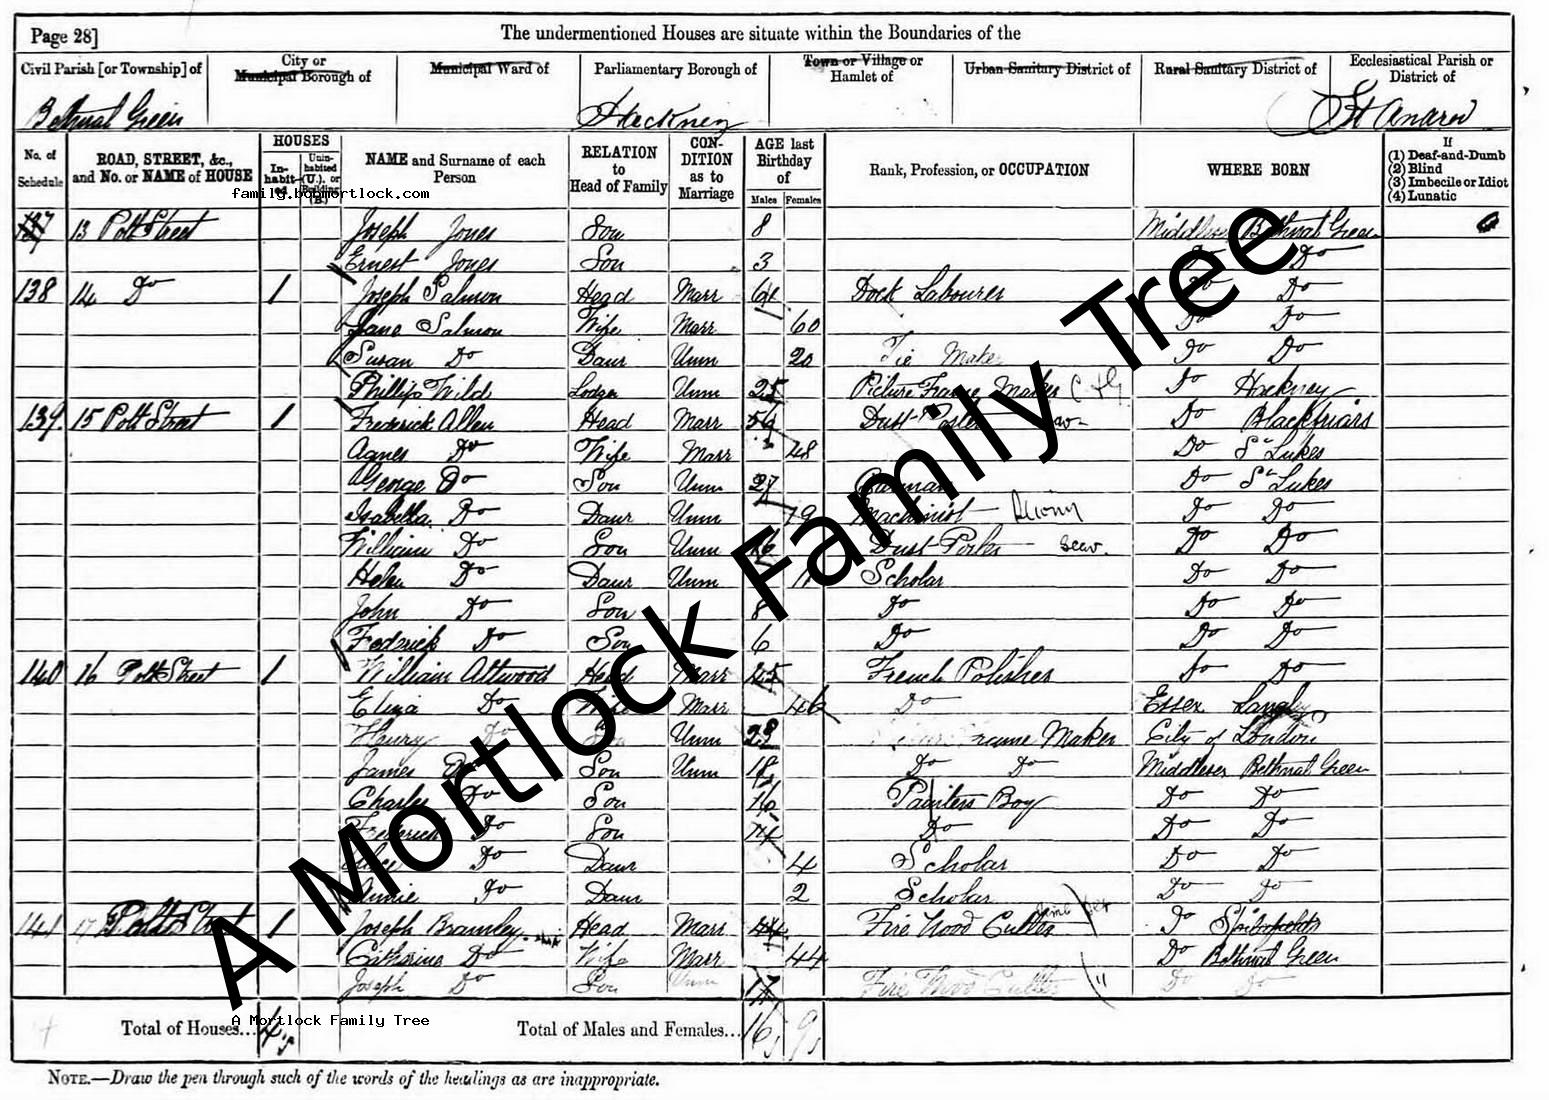 Page 28] The undermentioned Houses are situate within the Boundaries of the
Civil Parish [or Township] of City or Municipal Borough of Municipal Ward of Parliamentary Borough of Town or Village or Hamlet of Urban Sanitary District of Rural Sanitary District of Ecclesiastical Parish or District of
Bethnal Green Hackney St Andrew
No. of Schedule ROAD, STREET, &c., and No. or NAME of HOUSE HOUSES Inhabited Uninhabited (U.), or Building (B.) NAME and Surname of each Person RELATION to Head of Family CONDITION as to Marriage AGE last Birthday of Males Females Rank, Profession, or OCCUPATION WHERE BORN If (1) Deaf-and-Dumb (2) Blind (3) Imbecile or Idiot (4) Lunatic
family.bobmortlock.com
137 13 Pott Street Joseph Jones Son 8 Middlesex Bethnal Green
Ernest Jones Son 3 Do Do
138 14 Do 1 Joseph Salmon Head Marr 61 Dock Labourer Do Do
Jane Salmon Wife Marr 60 Do Do
Susan Do Daur Unm 20 Tie Maker Do Do
Phillip Wild Lodger Unm 25 Picture Frame Maker Do Hackney
139 15 Pott Street 1 Frederick Allen Head Marr Dust Do Blackfriars
Agnes Do Wife Marr 48 Do St Lukes
George Do Son Unm 27 Carman Do St Lukes
Isabella Do Daur Unm 19 Machinist Do Do
William Do Son Unm 16 Dust Do Do
Helen Do Daur Unm 11 Scholar Do Do
John Do Son 8 Do Do Do
Fedrick Do Son 6 Do Do Do
140 16 Pott Street 1 William Attwood Head Marr 45 French Polisher Do Do
Eliza Do Wife Marr 46 Do Essex Langley
Henry Do Son Unm 23 Frame Maker City of London
James Do Son Unm 18 Do Do Middlesex Bethnal Green
Charles Do Son 16 Painters Boy Do Do
Frederick Do Son 14 Do Do Do
Alice Do Daur 4 Scholar Do Do
Annie Do Daur 2 Scholar Do Do
141 17 Pott Street 1 Joseph Bramley Head Marr 44 Fire Wood Cutter Do Spitalfields
Catharine Do Wife Marr 44 Do Bethnal Green
Joseph Do Son Unm 17 Fire Wood Cutter Do Do
4 Total of Houses... 4 Total of Males and Females... 16 9
A Mortlock Family Tree
NOTE.—Draw the pen through such of the words of the headings as are inappropriate.
A Mortlock Family Tree